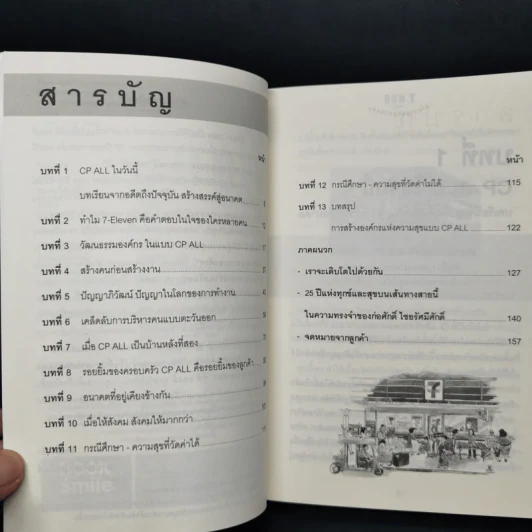 สารบัญ
หน้า
บทที่ 1 CP ALL ในวันนี้
บทเรียนจากอดีตถึงปัจจุบัน สร้างสรรค์สู่อนาคต
บทที่ 2 ทำไม 7-Eleven คือคำตอบในใจของใครหลายคน
บทที่ 3 วัฒนธรรมองค์กร ในแบบ CP ALL
บทที่ 4 สร้างคนก่อนสร้างงาน
บทที่ 5 ปัญญาภิวัฒน์ ปัญญาในโลกของการทำงาน
บทที่ 6 เคล็ดลับการบริหารคนแบบตะวันออก
บทที่ 7 เมื่อ CP ALL เป็นบ้านหลังที่สอง
บทที่ 8 รอยยิ้มของครอบครัว CP ALL คือรอยยิ้มของลูกค้า
บทที่ 9 อนาคตที่อยู่เคียงข้างกัน
บทที่ 10 เมื่อให้สังคม สังคมให้มากกว่า
บทที่ 11 กรณีศึกษา - ความสุขที่วัดค่าได้
หน้า
บทที่ 12 กรณีศึกษา - ความสุขที่วัดค่าไม่ได้ 115
บทที่ 13 บทสรุป
การสร้างองค์กรแห่งความสุขแบบ CP ALL 122
ภาคผนวก
- เราจะเติบโตไปด้วยกัน 127
- 25 ปีแห่งทุกข์และสุขบนเส้นทางสายนี้
ในความทรงจำของก่อศักดิ์ ไชยรัศมีศักดิ์ 140
- จดหมายจากลูกค้า 157